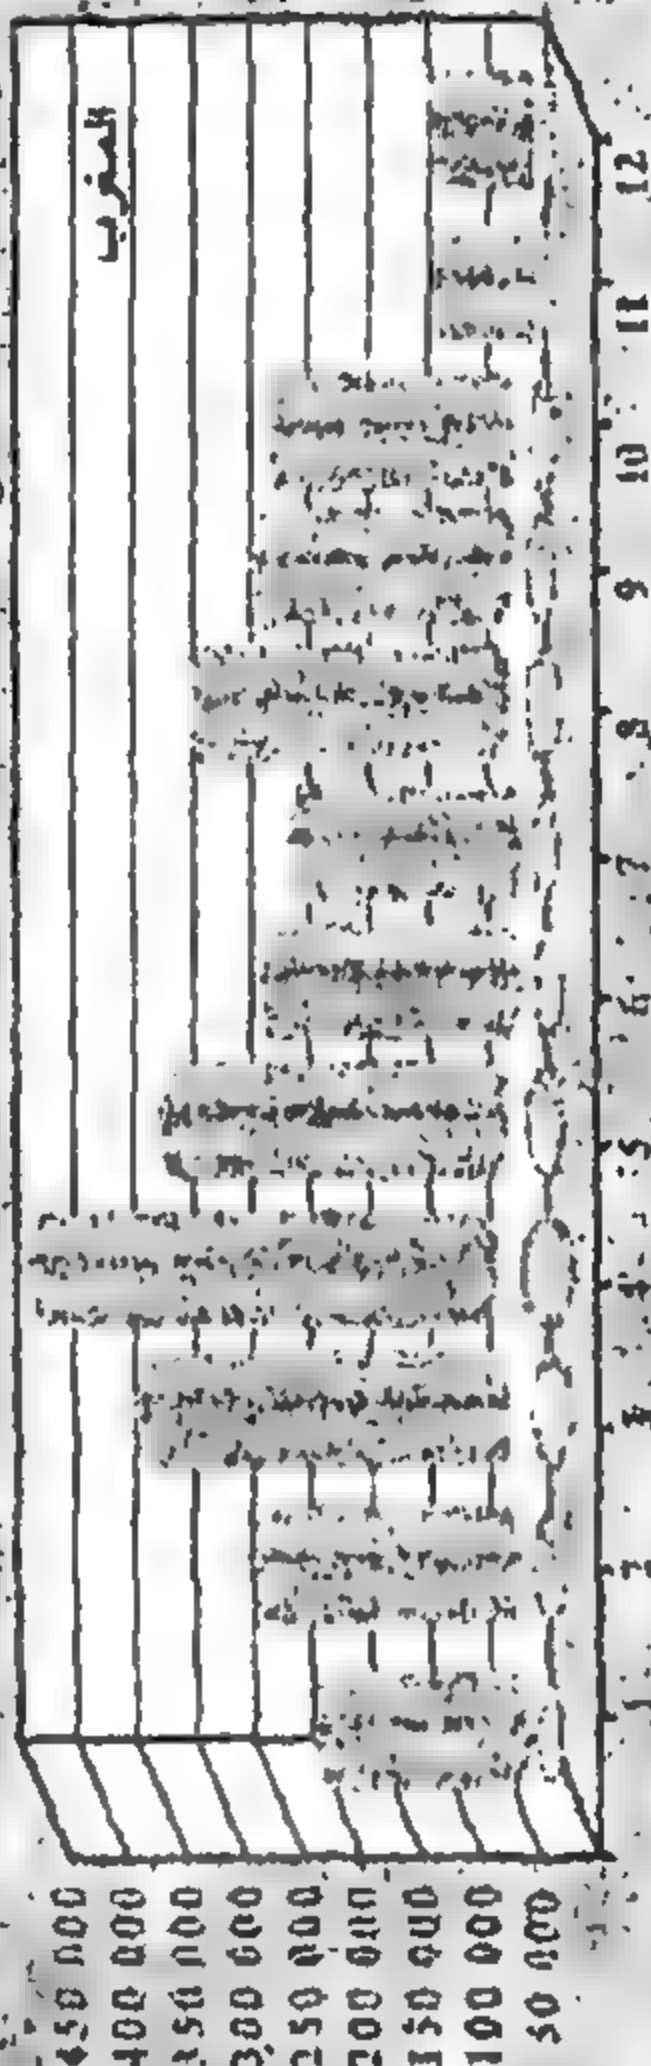 المغرب
450 000
400 000
350 000
300 000
250 000
200 000
150 000
100 000
50 000
1
2
3
4
5
6
7
8
9
10
11
12